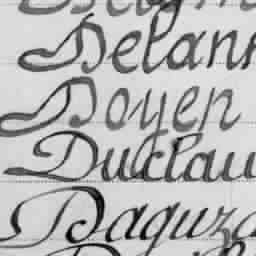 Delann
Doyen
Duclau
Daguza